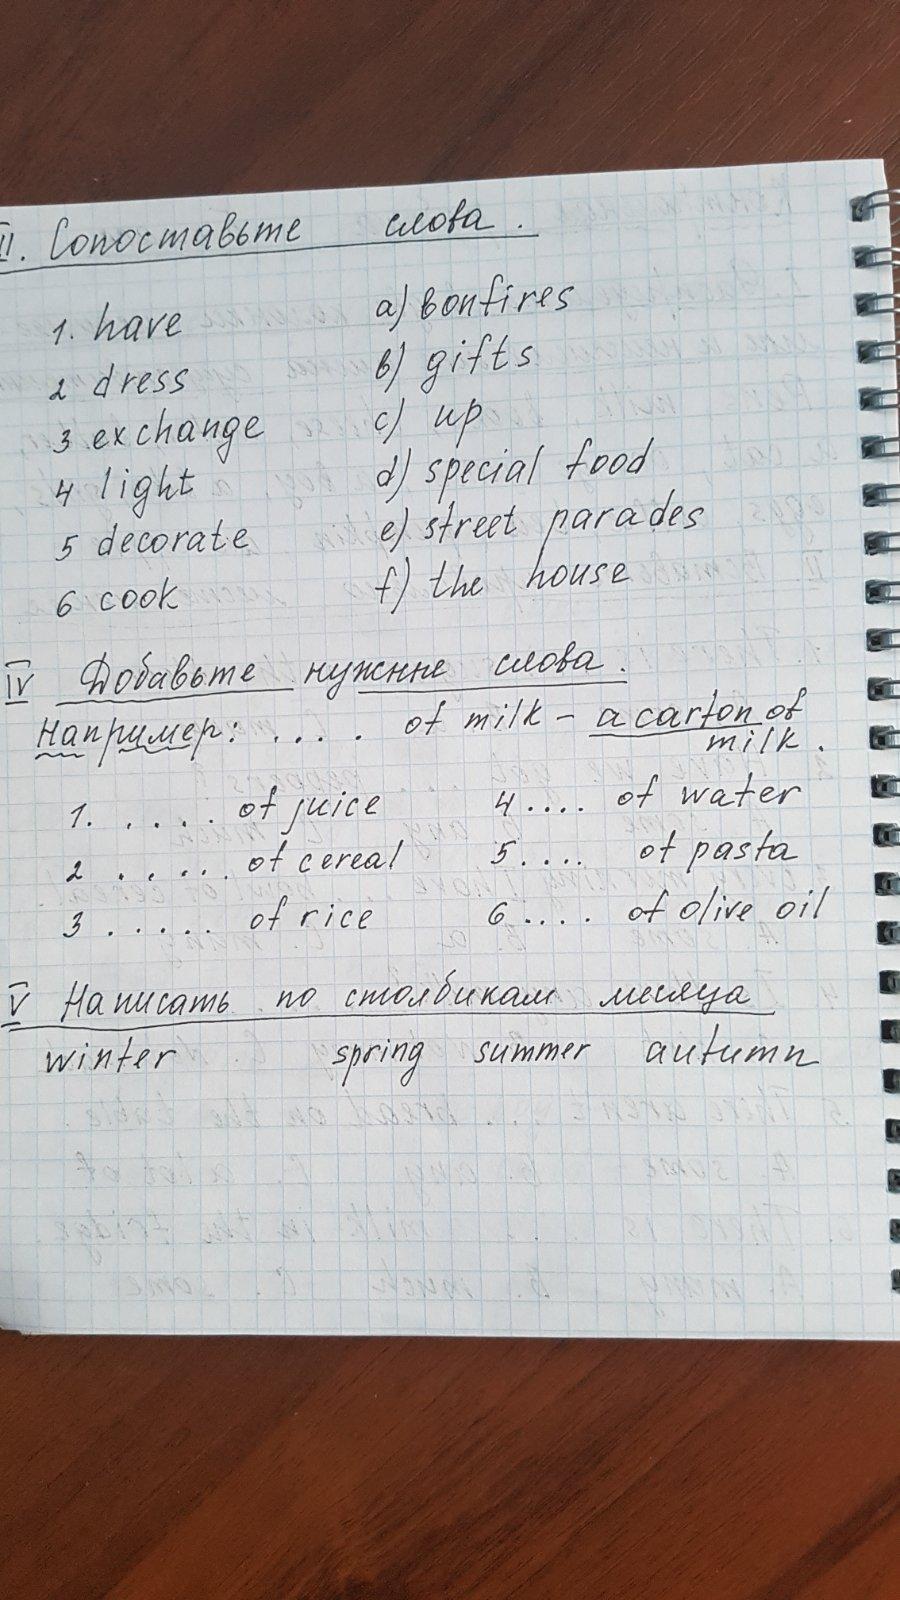 II. Сопоставьте слова.
1. have a) bonfires
2 dress b) gifts
3 exchange c) up
4 light d) special food
5 decorate e) street parades
6 cook f) the house
IV Добавьте нужные слова.
Например: .... of milk - a carton of
milk.
1. ..... of juice 4 .... of water
2 ..... of cereal 5 .... of pasta
3 ..... of rice 6 .... of olive oil
V Написать по столбикам месяца
winter spring summer autumn